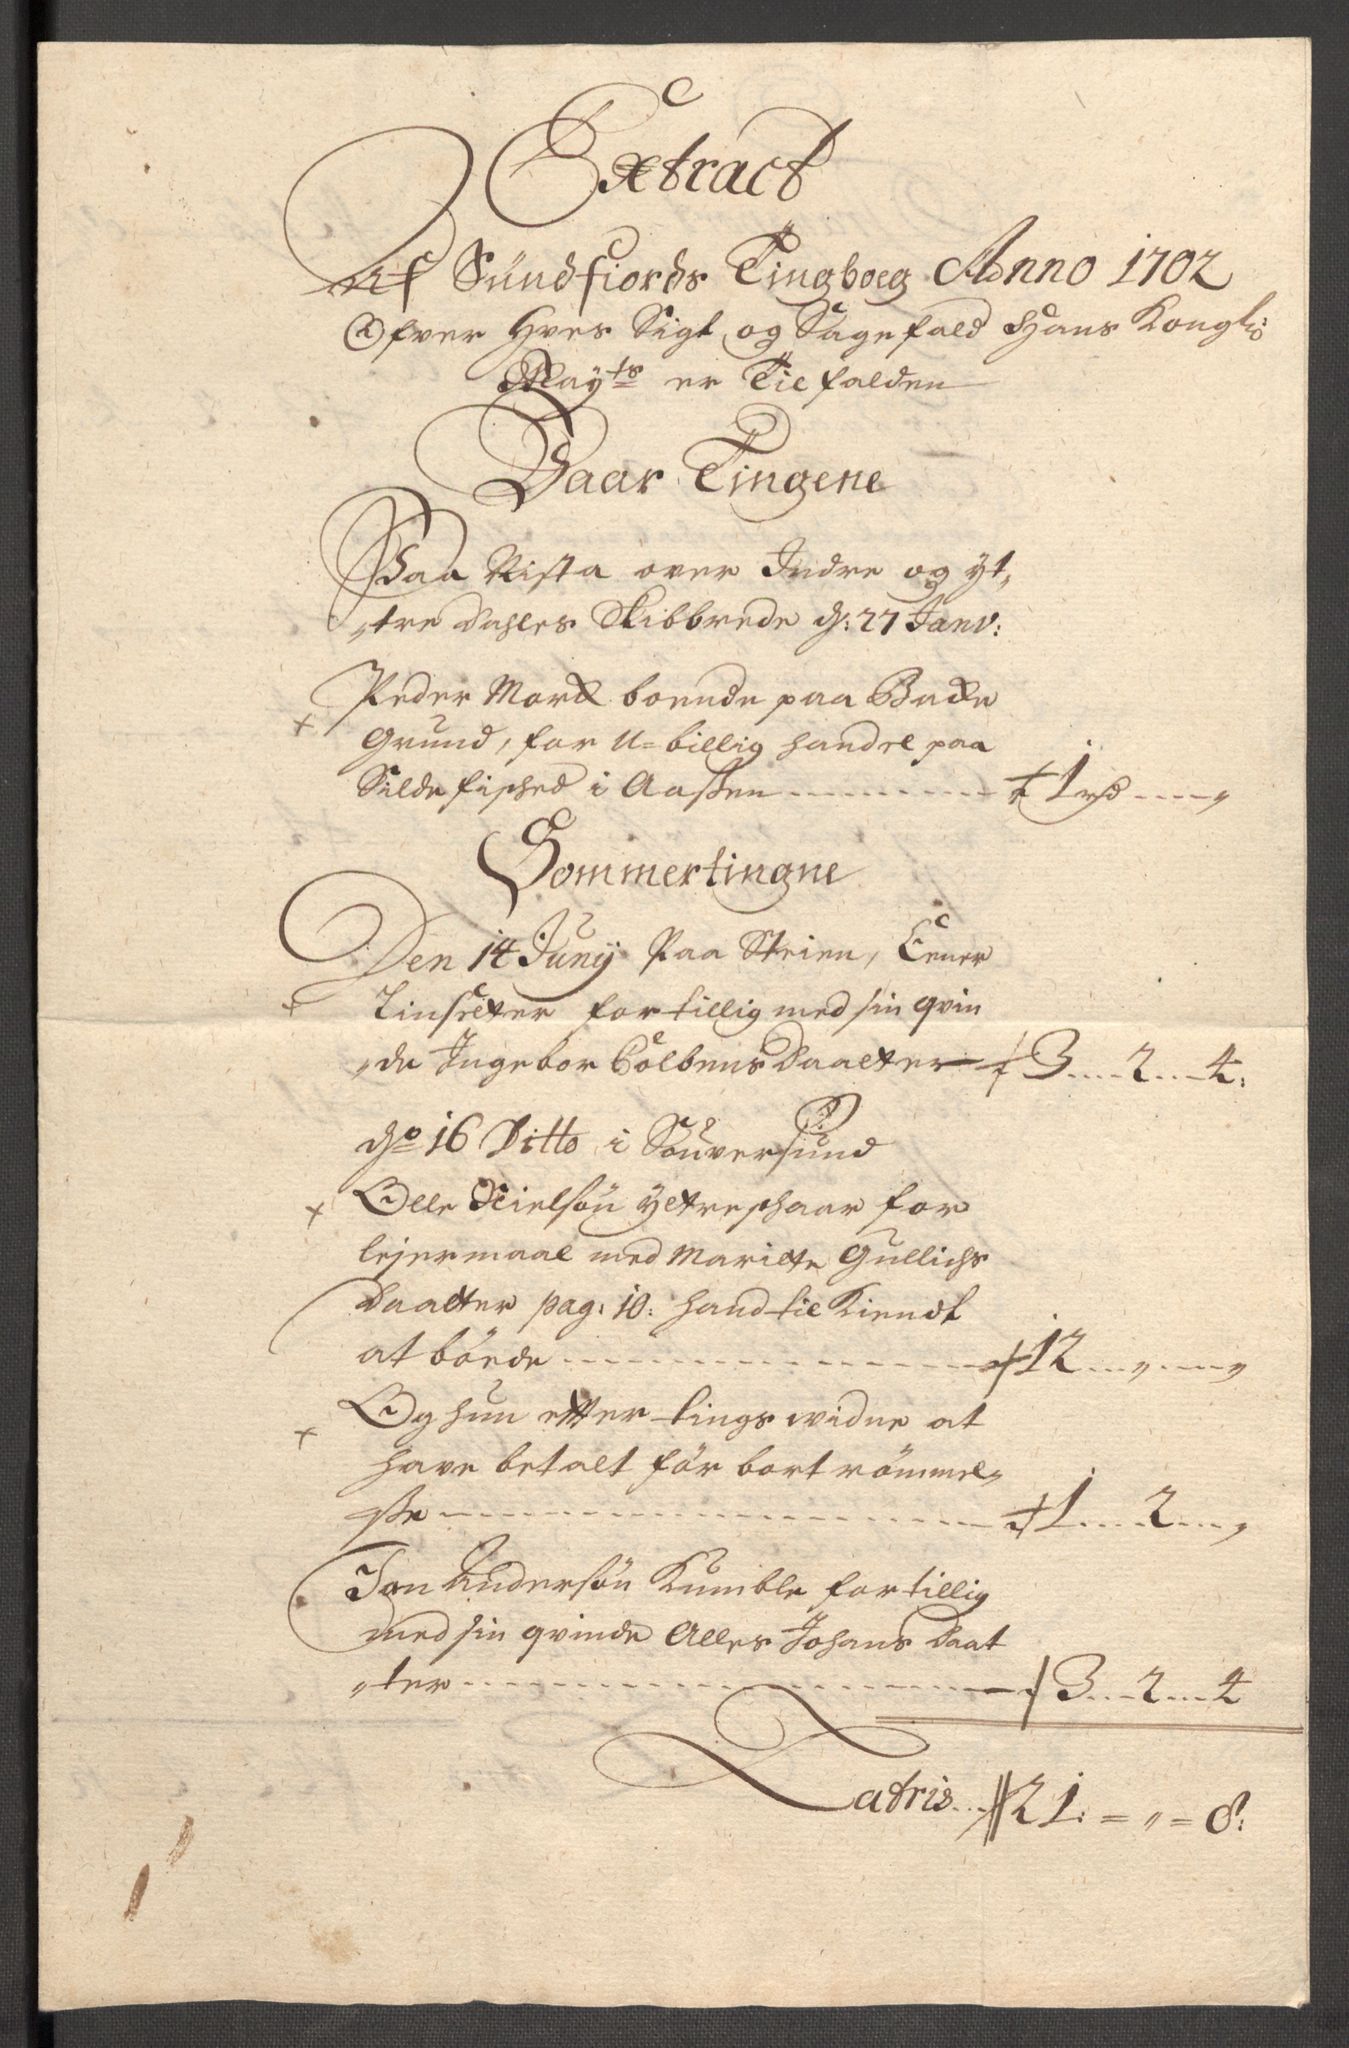 Extract
Af Sündfiords Tingboeg Anno 1702
Ofver Hves Sigt og Sagefald Hans Kongl:
May:ts er Tilfalden
Vaar Tingene
Paa Rifta over Indre og yt„
„tre Dahles Skibbrede d: 27 Janv:
+ Peder Mork boende paa Bakke
Grund, for U=billig handel paa
Silde fisched i Aassen ......... 1 rd .... „
Sommertingne
Den 14 Junij Paa Steien, Ener
+ for tillig med sin qvin
„de Ingebor Colbens Daatter 3 .... 2 .... 4:
do 16 Ditto i Söuversund
+ Olle Nielsön ytreschaar for
lejermaal med Maritte Gullichs
Daatter pag: 10: hand til Kiendt
at böede ......... 12 .... „ .... „
+ Og hun etter tings widne at
have betalt för bortrömmel„
sse ......... 1 .... 2 .... „
Jon Andersön Kumble for tillig
med sin qvinde Alles Johans Daat
„ter ......... 3 .... 2 .... 4
Latris .. 21: = „ = 8: